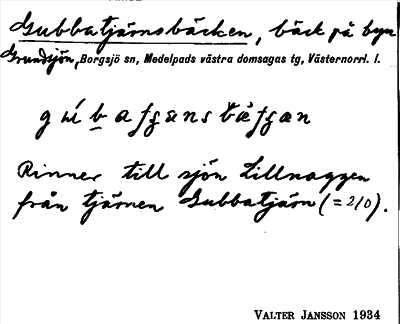 Gubbatjärnsbäcken, bäck på byn
Grundsjön, Borgsjö sn, Medelpads västra domsagas tg, Västernorrl. l.
Rinner till sjön Lillnaggen
från tjärnen Gubbatjärn (= 210).
VALTER JANSSON 1934